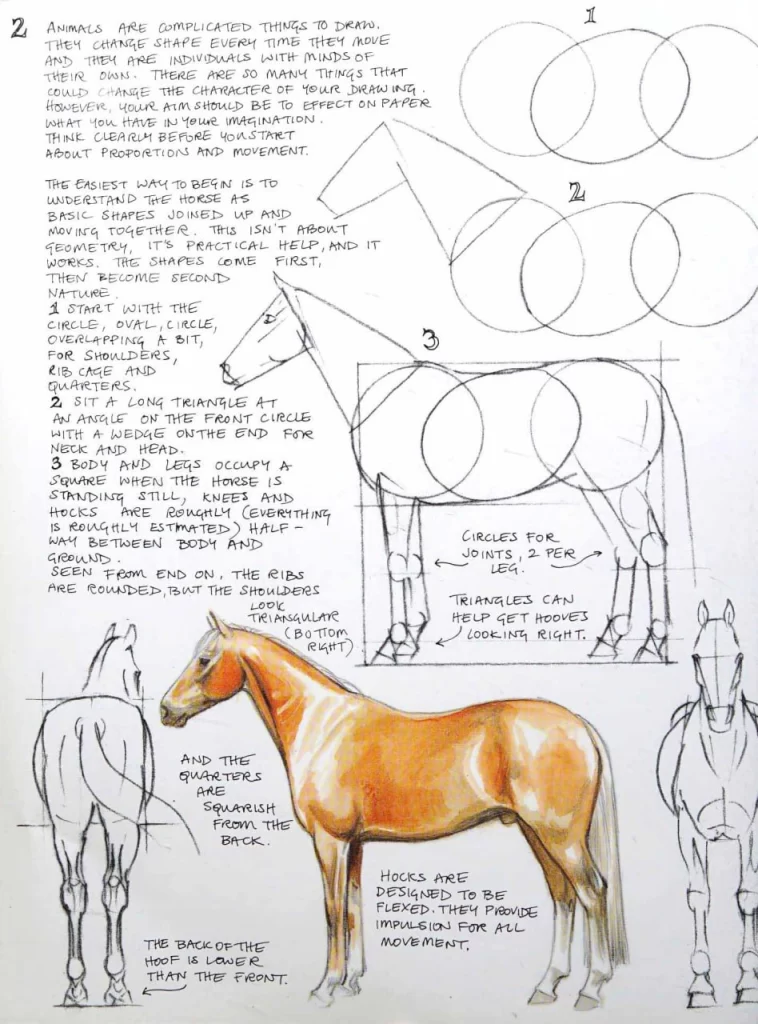 2
ANIMALS ARE COMPLICATED THINGS TO DRAW.
THEY CHANGE SHAPE EVERY TIME THEY MOVE
AND THEY ARE INDIVIDUALS WITH MINDS OF
THEIR OWN. THERE ARE SO MANY THINGS THAT
COULD CHANGE THE CHARACTER OF YOUR DRAWING.
HOWEVER, YOUR AIM SHOULD BE TO EFFECT ON PAPER
WHAT YOU HAVE IN YOUR IMAGINATION.
THINK CLEARLY BEFORE YOU START
ABOUT PROPORTION AND MOVEMENT.
THE EASIEST WAY TO BEGIN IS TO
UNDERSTAND THE HORSE AS
BASIC SHAPES JOINED UP AND
MOVING TOGETHER. THIS ISN'T ABOUT
GEOMETRY, IT'S PRACTICAL HELP, AND IT
WORKS. THE SHAPES COME FIRST,
THEN BECOME SECOND
NATURE.
1 START WITH THE
CIRCLE, OVAL, CIRCLE,
OVERLAPPING A BIT,
FOR SHOULDERS,
RIB CAGE AND
QUARTERS.
2 SIT A LONG TRIANGLE AT
AN ANGLE ON THE FRONT CIRCLE
WITH A WEDGE ON THE END FOR
NECK AND HEAD.
3 BODY AND LEGS OCCUPY A
SQUARE WHEN THE HORSE IS
STANDING STILL, KNEES AND
HOCKS ARE ROUGHLY (EVERYTHING
IS ROUGHLY ESTIMATED) HALF-
WAY BETWEEN BODY AND
GROUND.
SEEN FROM END ON, THE RIBS
ARE ROUNDED, BUT THE SHOULDERS
LOOK
TRIANGULAR
(BOTTOM
RIGHT)
1
2
3
CIRCLES FOR
JOINTS, 2 PER
LEG.
TRIANGLES CAN
HELP GET HOOVES
LOOKING RIGHT.
AND THE
QUARTERS
ARE
SQUARISH
FROM THE
BACK.
HOCKS ARE
DESIGNED TO BE
FLEXED. THEY PROVIDE
IMPULSION FOR ALL
MOVEMENT.
THE BACK OF THE
HOOF IS LOWER
THAN THE FRONT.